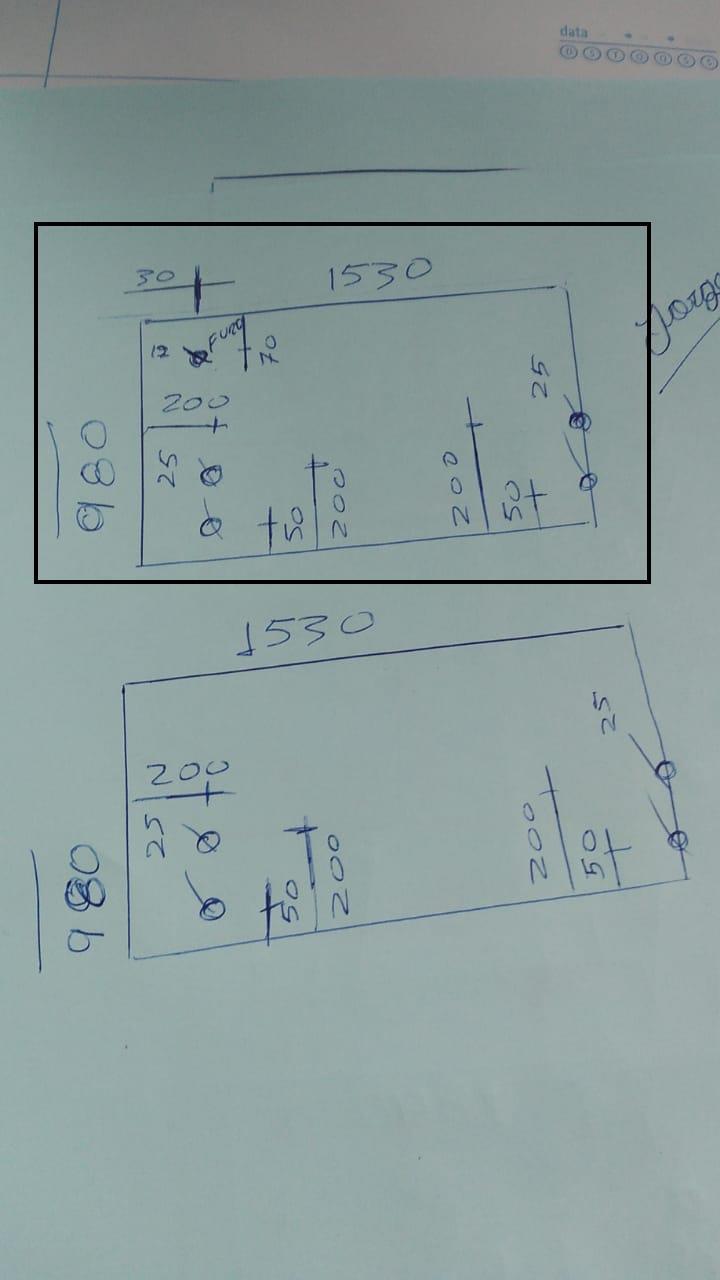 data
D S T Q Q S S
Jorge
30
1530
12
FURO
70
200
25
25
980
50
200
200
50
1530
200
25
25
980
50
200
200
50